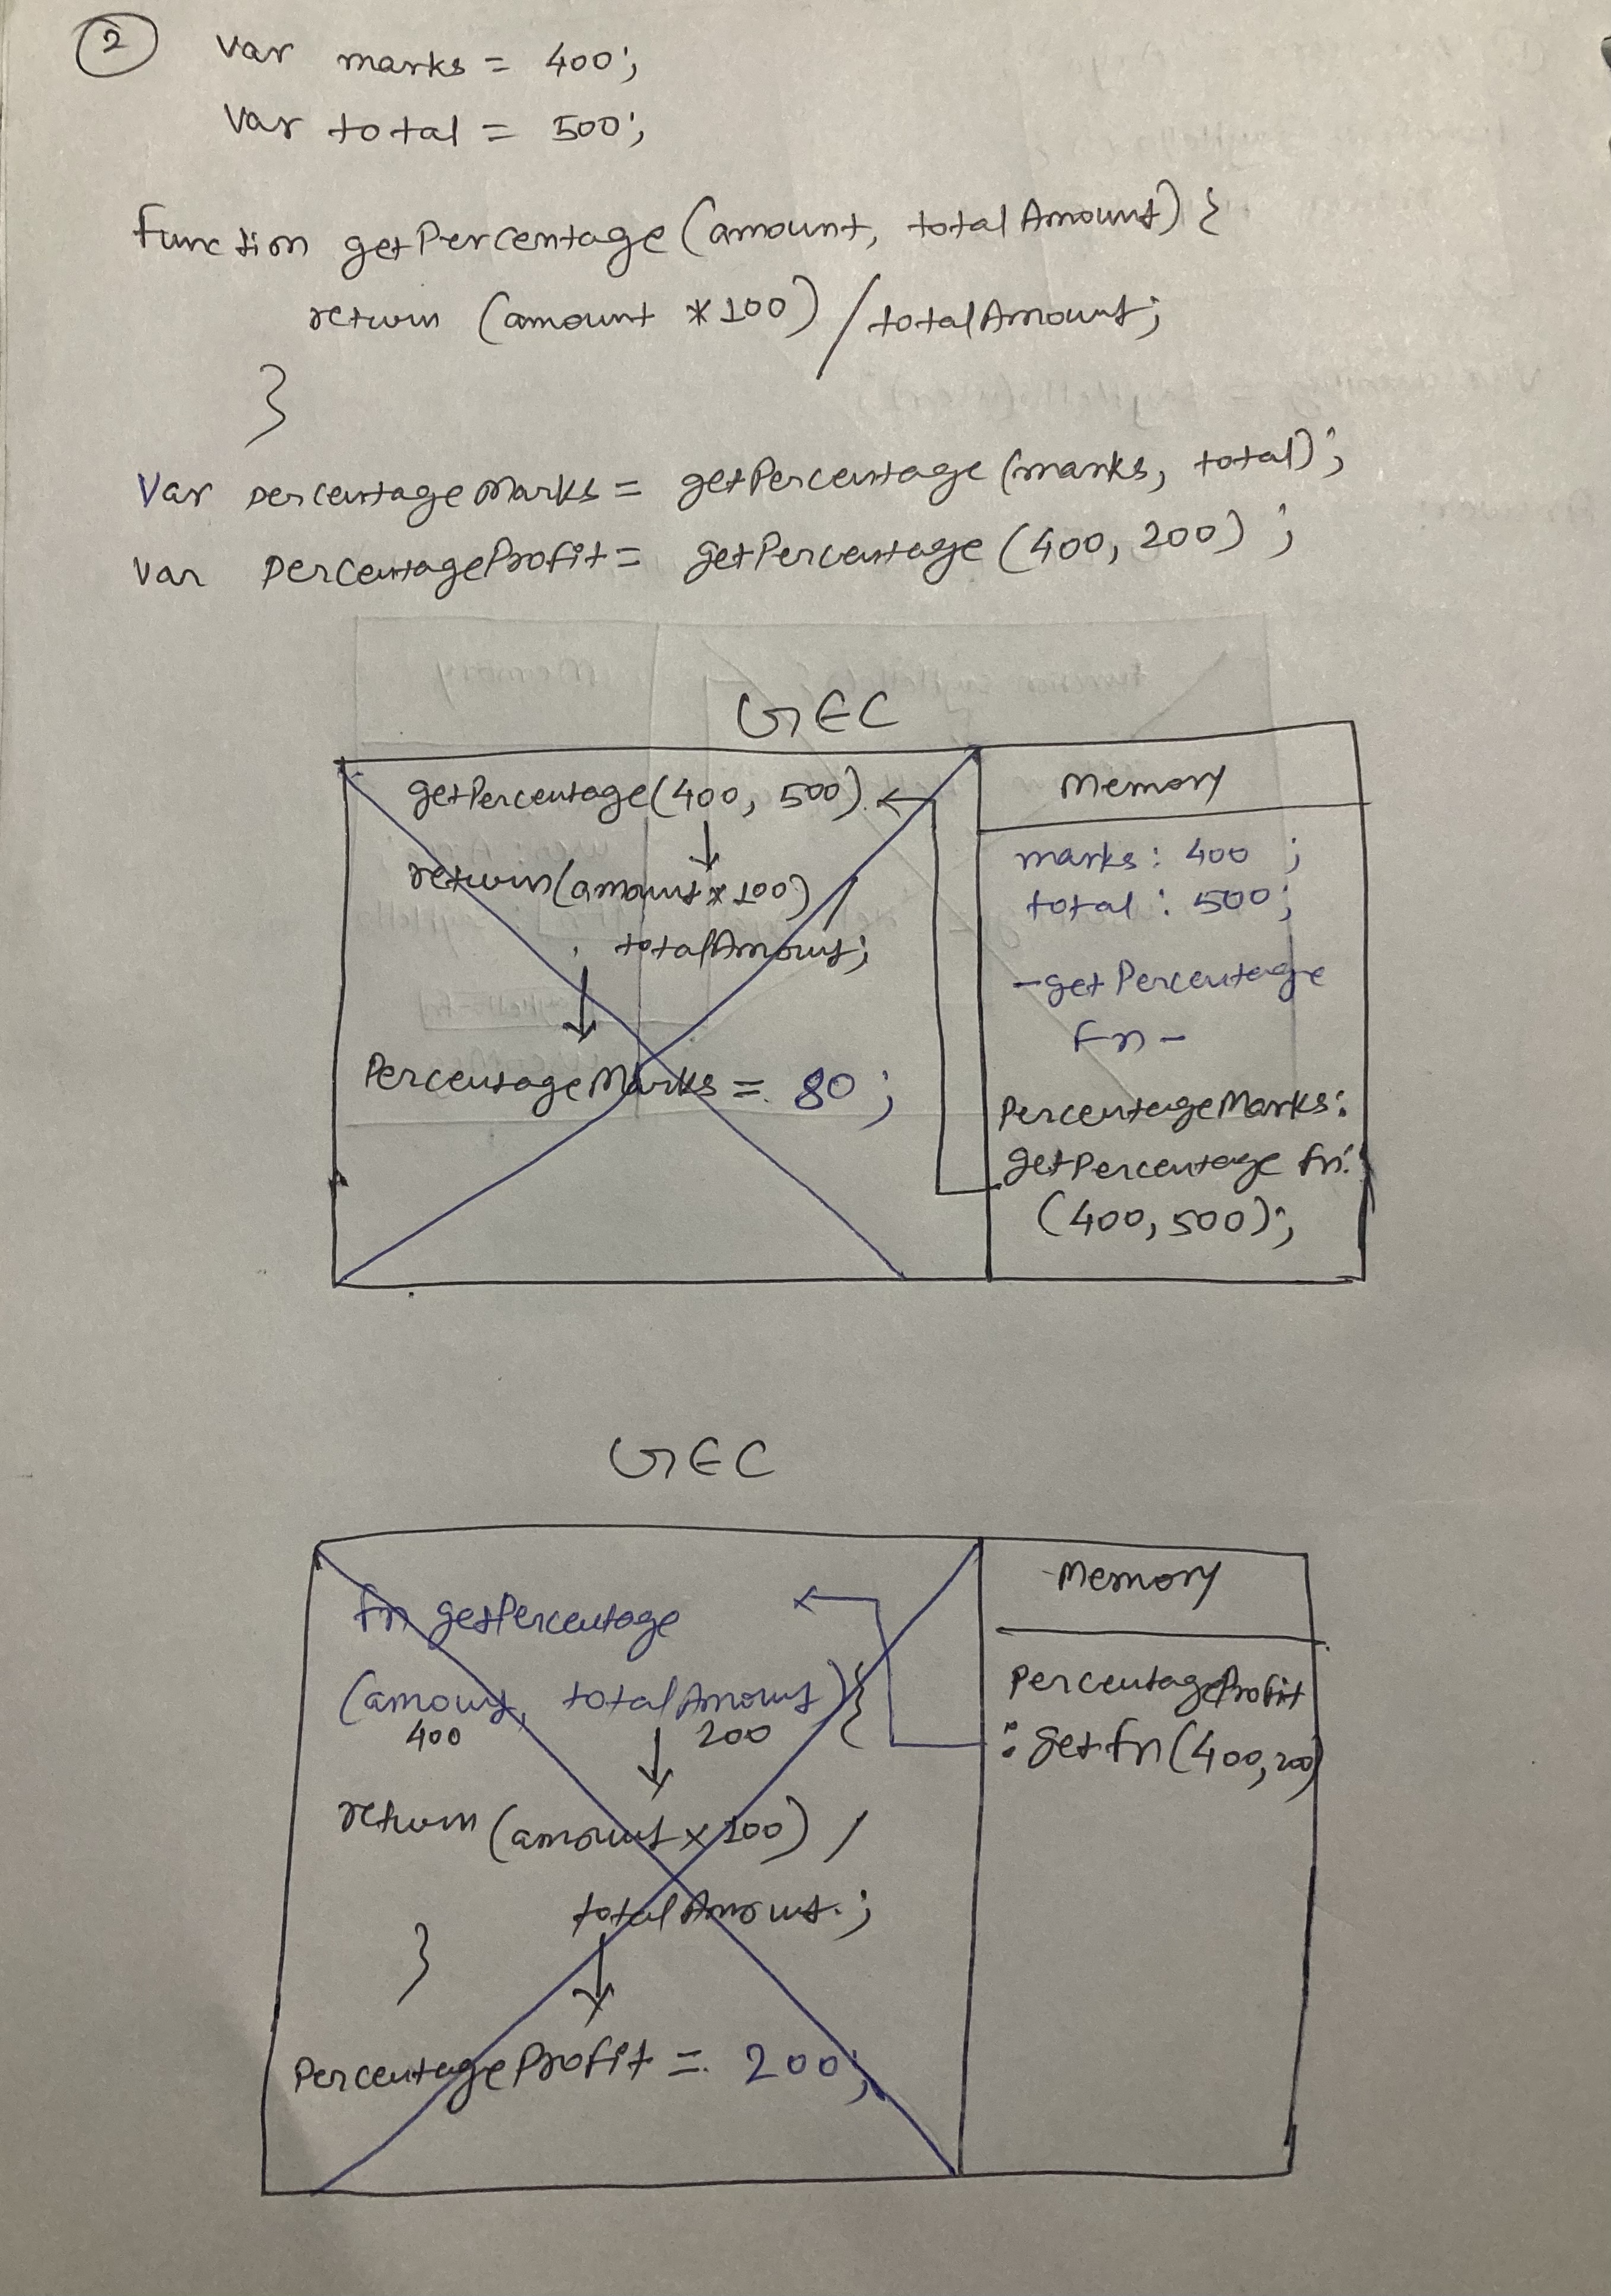 2
var marks = 400;
var total = 500;
function getPercentage (amount, totalAmount) {
return (amount * 100) / totalAmount;
}
Var percentageMarks = getPercentage (marks, total);
Var percentageProfit = getPercentage (400, 200) ;
GEC
getPercentage(400, 500)
return (amount * 100) /
totalAmount;
PercentageMarks = 80 ;
Memory
marks : 400 ;
total : 500;
- getPercentage
fn -
PercentageMarks:
getPercentage fn
(400, 500);
GEC
fn getPercentage
(amount, totalAmount) {
400 200
return (amount x 100) /
totalAmount ;
}
PercentageProfit = 200;
Memory
PercentageProfit
: get fn (400, 200)